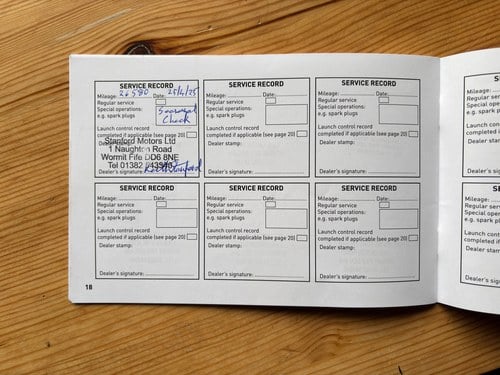 SERVICE RECORD
Mileage: 26590 Date: 25/4/25
Regular service
Special operations: Seasonal
e.g. spark plugs Check
Launch control record
completed if applicable (see page 20)
Stanford Motors Ltd
1 Naughton Road
Wormit Fife DD6 8NE
Tel 01382
SERVICE RECORD
Mileage: Date:
Regular service
Special operations:
e.g. spark plugs
Launch control record
completed if applicable (see page 20)
Dealer stamp:
Dealer's signature:
SERVICE RECORD
Mileage: Date:
Regular service
Special operations:
e.g. spark plugs
Launch control record
completed if applicable (see page 20)
Dealer stamp:
Dealer's signature:
SERVICE RECORD
Mileage: Date:
Regular service
Special operations:
e.g. spark plugs
Launch control record
completed if applicable (see page 20)
Dealer stamp:
Dealer's signature:
SERVICE RECORD
Mileage: Date:
Regular service
Special operations:
e.g. spark plugs
Launch control record
completed if applicable (see page 20)
Dealer stamp:
Dealer's signature:
SERVICE RECORD
Mileage: Date:
Regular service
Special operations:
e.g. spark plugs
Launch control record
completed if applicable (see page 20)
Dealer stamp:
Dealer's signature:
18